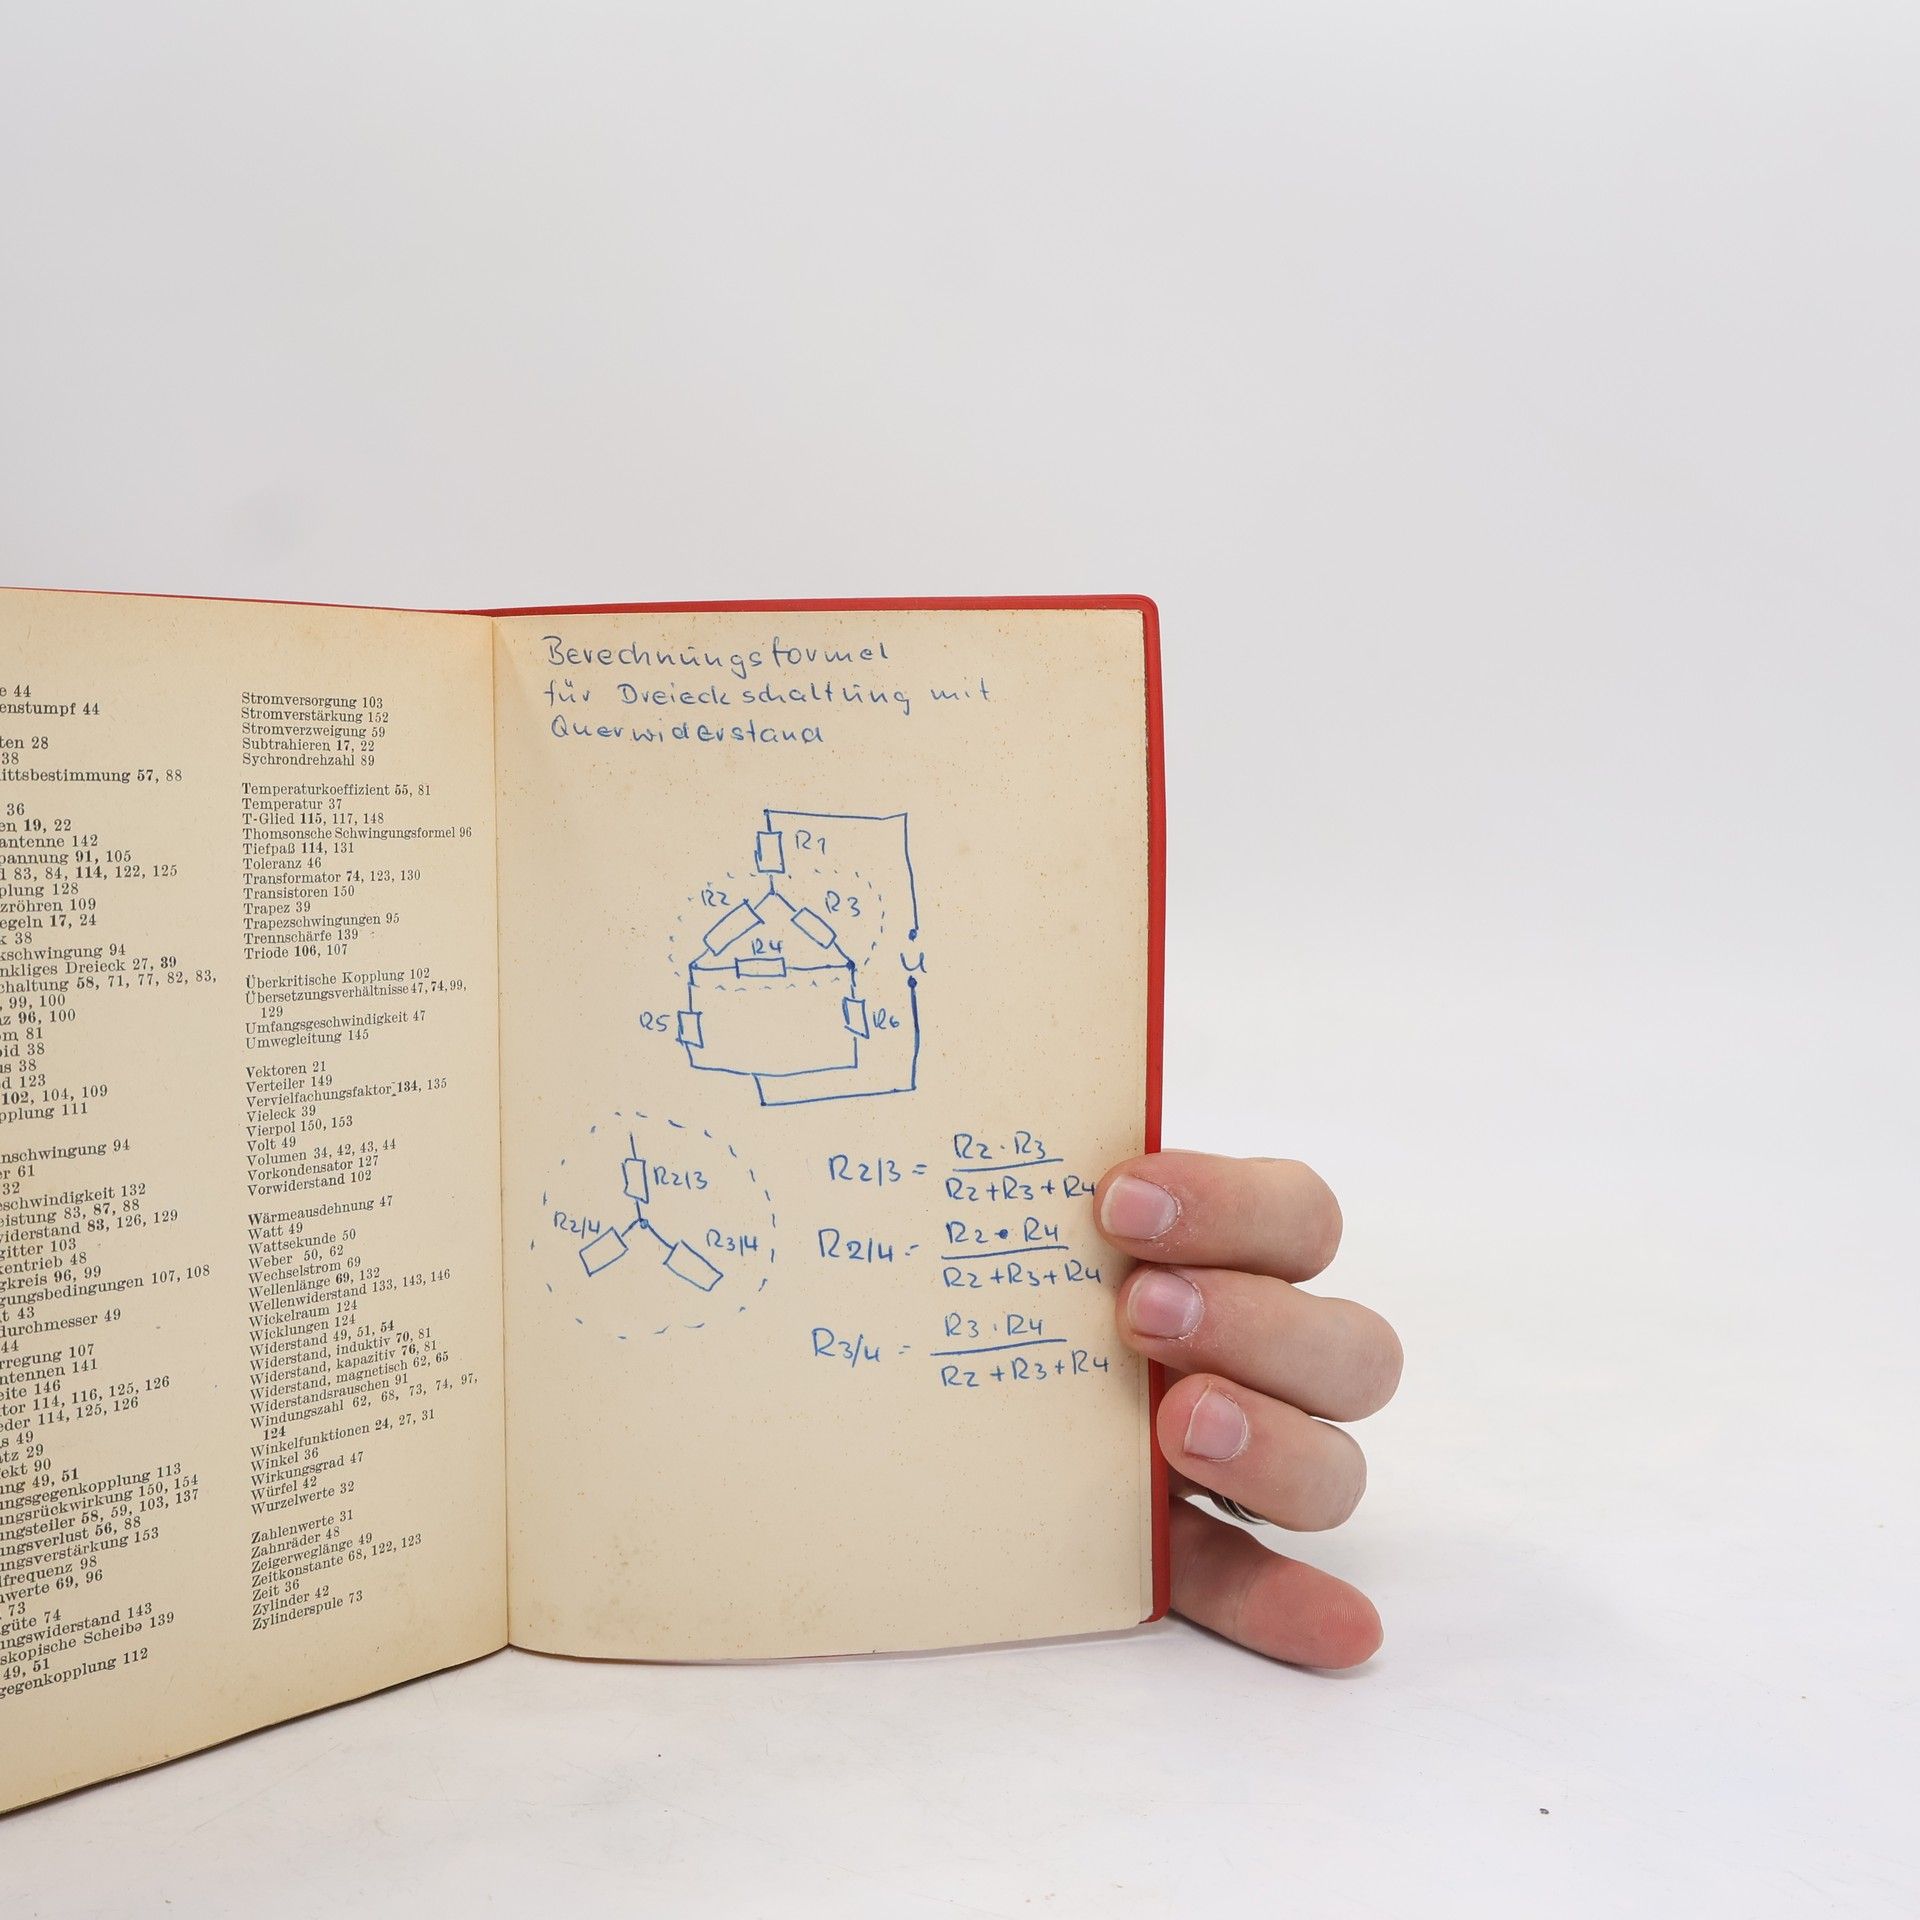 e 44
enstumpf 44
ten 28
38
ittsbestimmung 57, 88
36
en 19, 22
antenne 142
pannung 91, 105
d 83, 84, 114, 122, 125
plung 128
zröhren 109
egeln 17, 24
k 38
kschwingung 94
nkliges Dreieck 27, 39
chaltung 58, 71, 77, 82, 83,
, 99, 100
nz 96, 100
om 81
oid 38
us 38
ed 123
102, 104, 109
pplung 111
nschwingung 94
er 61
32
eschwindigkeit 132
eistung 83, 87, 88
widerstand 83, 126, 129
gitter 103
kentrieb 48
gkreis 96, 99
gungsbedingungen 107, 108
t 43
durchmesser 49
44
rregung 107
ntennen 141
eite 146
ktor 114, 116, 125, 126
eder 114, 125, 126
s 49
atz 29
fekt 90
ung 49, 51
ungsgegenkopplung 113
ungsrückwirkung 150, 154
ungsteiler 58, 59, 103, 137
ungsverlust 56, 88
ungsverstärkung 153
lfrequenz 98
nwerte 69, 96
73
güte 74
ungswiderstand 143
skopische Scheibe 139
49, 51
gegenkopplung 112
Stromversorgung 103
Stromverstärkung 152
Stromverzweigung 59
Subtrahieren 17, 22
Sychrondrehzahl 89
Temperaturkoeffizient 55, 81
Temperatur 37
T-Glied 115, 117, 148
Thomsonsche Schwingungsformel 96
Tiefpaß 114, 131
Toleranz 46
Transformator 74, 123, 130
Transistoren 150
Trapez 39
Trapezschwingungen 95
Trennschärfe 139
Triode 106, 107
Überkritische Kopplung 102
Übersetzungsverhältnisse 47, 74, 99,
129
Umfangsgeschwindigkeit 47
Umwegleitung 145
Vektoren 21
Verteiler 149
Vervielfachungsfaktor 134, 135
Vieleck 39
Vierpol 150, 153
Volt 49
Volumen 34, 42, 43, 44
Vorkondensator 127
Vorwiderstand 102
Wärmeausdehnung 47
Watt 49
Wattsekunde 50
Weber 50, 62
Wechselstrom 69
Wellenlänge 69, 132
Wellenwiderstand 133, 143, 146
Wickelraum 124
Wicklungen 124
Widerstand 49, 51, 54
Widerstand, induktiv 70, 81
Widerstand, kapazitiv 76, 81
Widerstand, magnetisch 62, 65
Widerstandsrauschen 91
Windungszahl 62, 68, 73, 74, 97,
124
Winkelfunktionen 24, 27, 31
Winkel 36
Wirkungsgrad 47
Würfel 42
Wurzelwerte 32
Zahlenwerte 31
Zahnräder 48
Zeigerweglänge 49
Zeitkonstante 68, 122, 123
Zeit 36
Zylinder 42
Zylinderspule 73
Berechnungsformel
für Dreieckschaltung mit
Querwiderstand
R1
R2 R3
R4
U
R5 R6
R2/3
R2/4 R3/4
R2/3 = R2 · R3
R2 + R3 + R4
R2/4 = R2 · R4
R2 + R3 + R4
R3/4 = R3 · R4
R2 + R3 + R4